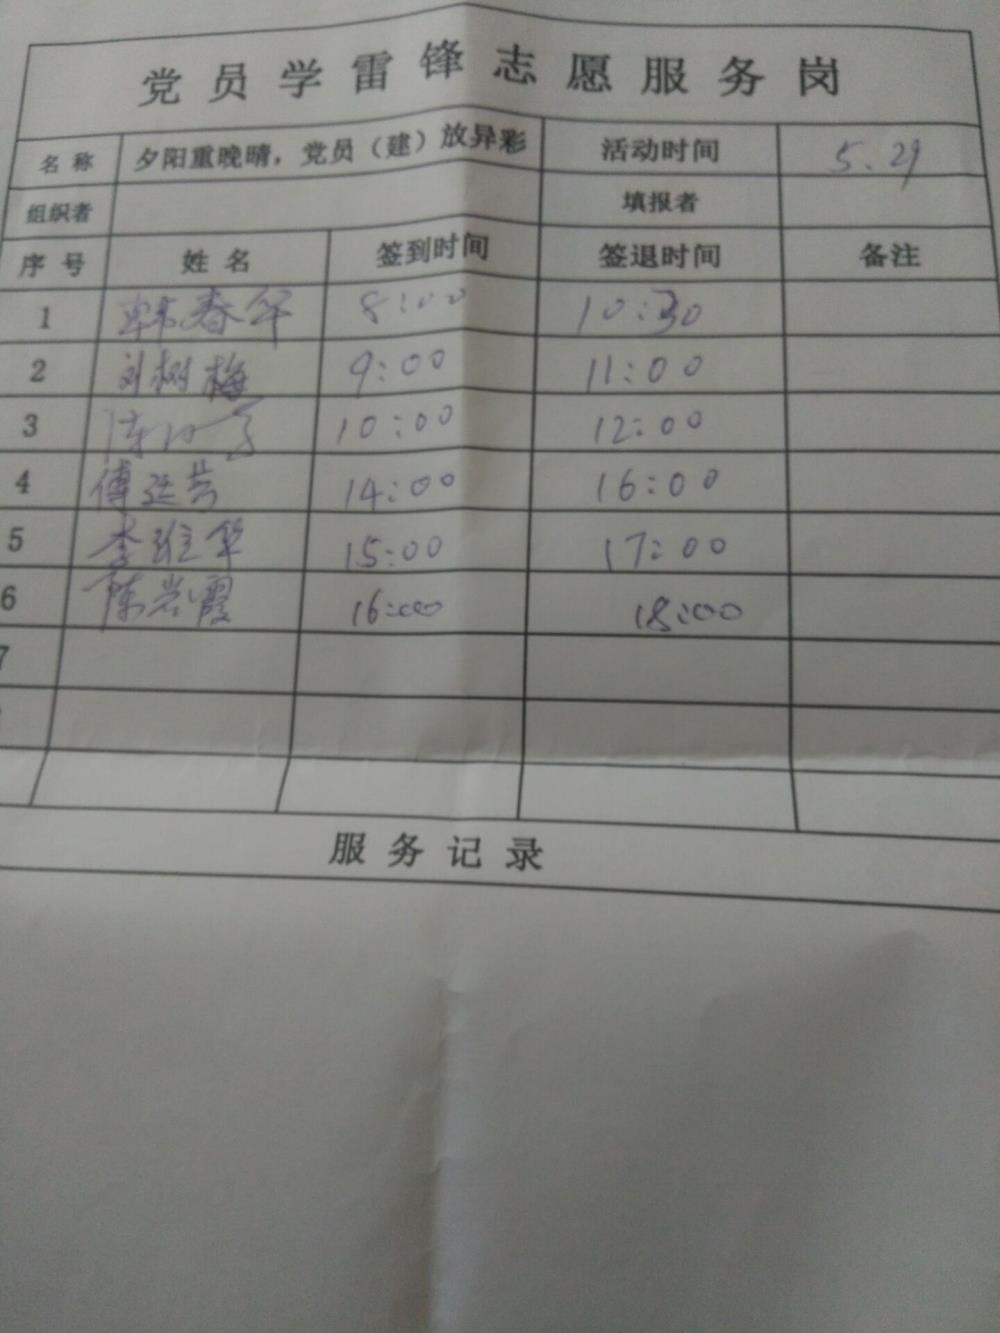 党员学雷锋志愿服务岗
名称 夕阳重晚晴，党员（建）放异彩 活动时间 5.29
组织者 填报者
序号 姓名 签到时间 签退时间 备注
1 韩春华 8:00 10:30
2 刘树梅 9:00 11:00
3 10:00 12:00
4 傅延芸 14:00 16:00
5 李雅华 15:00 17:00
6 陈岩霞 16:00 18:00
7
服务记录